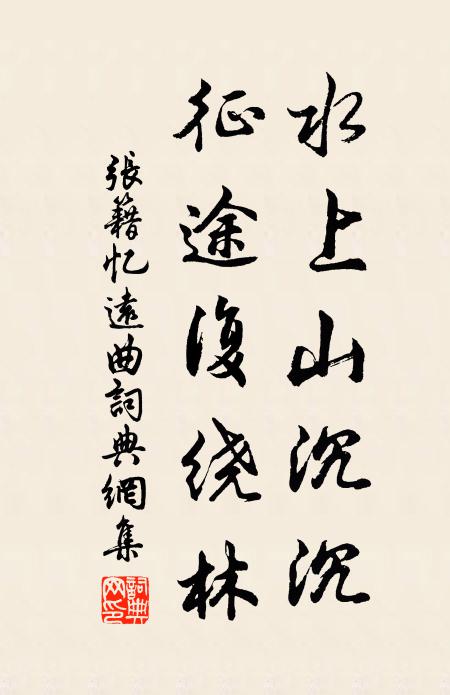 水上山沉沉
征途復绕林
張籍忆遠曲詞典網集
詞典网印